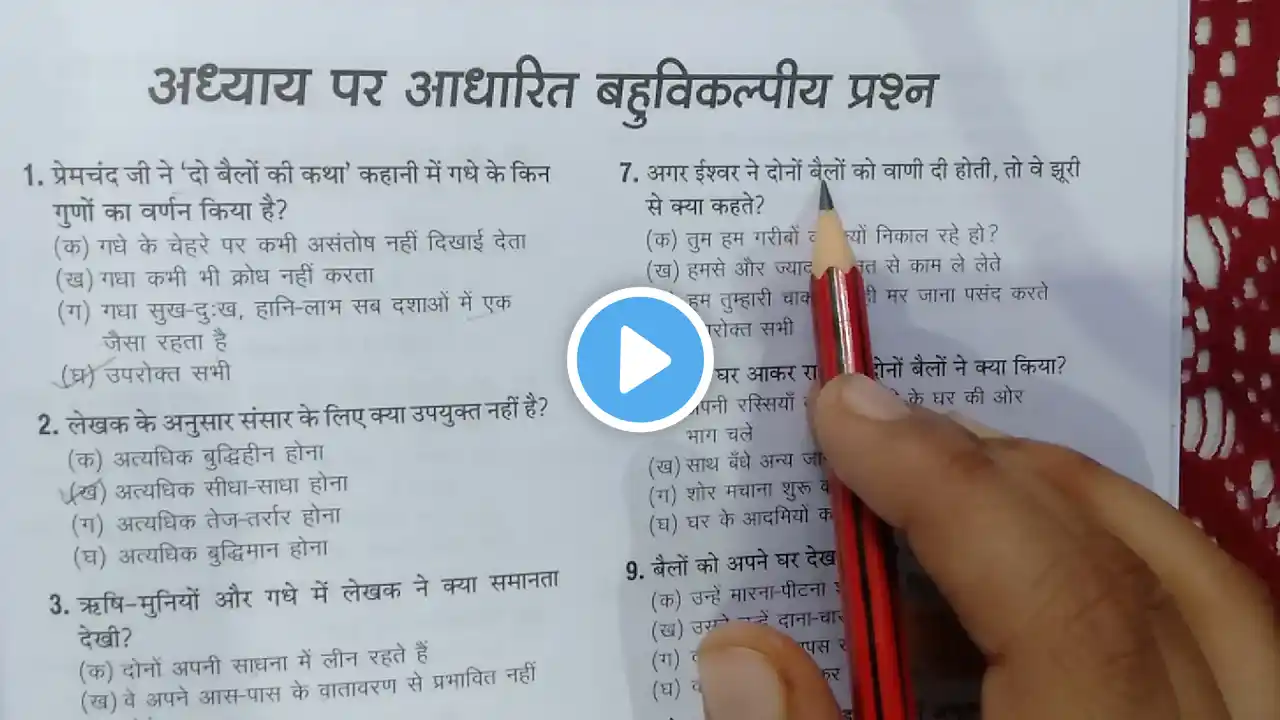 अध्याय पर आधारित बहुविकल्पीय प्रश्न
1. प्रेमचंद जी ने 'दो बैलों की कथा' कहानी में गधे के किन
गुणों का वर्णन किया है?
(क) गधे के चेहरे पर कभी असंतोष नहीं दिखाई देता
(ख) गधा कभी भी क्रोध नहीं करता
(ग) गधा सुख-दुःख, हानि-लाभ सब दशाओं में एक
जैसा रहता है
(घ) उपरोक्त सभी
2. लेखक के अनुसार संसार के लिए क्या उपयुक्त नहीं है?
(क) अत्यधिक बुद्धिहीन होना
(ख) अत्यधिक सीधा-साधा होना
(ग) अत्यधिक तेज-तर्रार होना
(घ) अत्यधिक बुद्धिमान होना
3. ऋषि-मुनियों और गधे में लेखक ने क्या समानता
देखी?
(क) दोनों अपनी साधना में लीन रहते हैं
(ख) वे अपने आस-पास के वातावरण से प्रभावित नहीं
7. अगर ईश्वर ने दोनों बैलों को वाणी दी होती, तो वे झूरी
से क्या कहते?
(क) तुम हम गरीबों निकाल रहे हो?
(ख) हमसे और से काम ले लेते
हम तुम्हारी मर जाना पसंद करते
सभी
घर आकर दोनों बैलों ने क्या किया?
रस्सियाँ के घर की ओर
भाग चले
(ख) साथ बँधे अन्य
(ग) शोर मचाना शुरू
(घ) घर के आदमियों
9. बैलों को अपने घर देख
(क) उन्हें मारना-पीटना
(ख) दाना
(ग)
(घ)